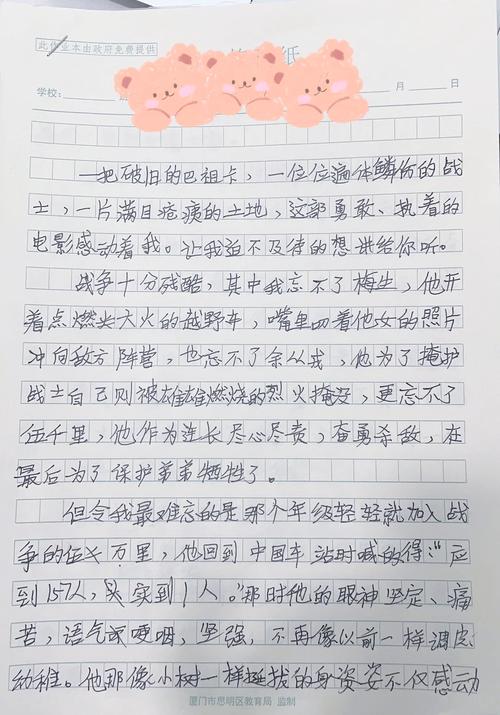 此作业本由政府免费提供
纸
学校：
月 日
一把破旧的巴祖卡，一位位遍体鳞伤的战
士，一片满目疮痍的土地，这部勇敢、执着的
电影感动着我。让我迫不及待的想讲给你听。
战争十分残酷，其中我忘不了梅生，他开
着点燃头大火的越野车，嘴里叨着他女的照片
冲向敌方阵营，也忘不了余从戎，他为了掩护
战士自己则被雄雄燃烧的烈火掩没，更忘不了
伍千里，他作为连长尽心尽责，奋勇杀敌，在
最后为了保护弟弟牺牲了。
但令我最难忘的是那个年级轻轻就加入战
争的伍万里，他回到中国车站时喊的得：“应
到157人，实到1人。”那时他的眼神坚定、痛
苦，语气哽咽，坚强，不再像以前一样调皮
幼稚。他那像小树一样挺拔的身姿不仅感动
厦门市思明区教育局 监制